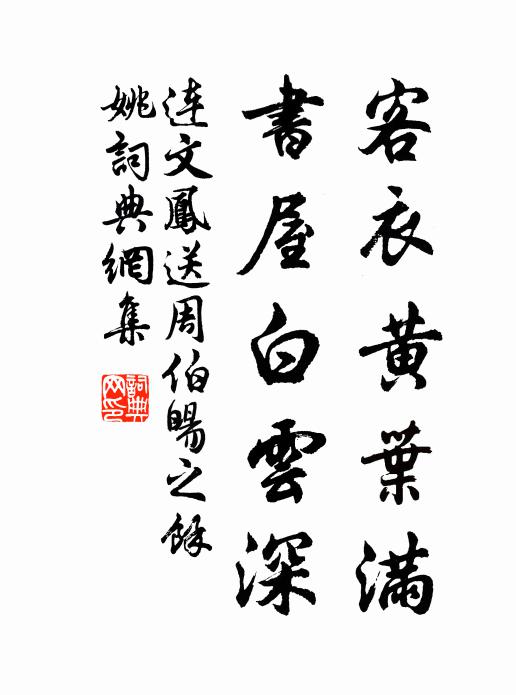 客衣黃葉滿
書屋白雲深
連文鳳送周伯暘之餘
姚詞典網集
詞典
网印